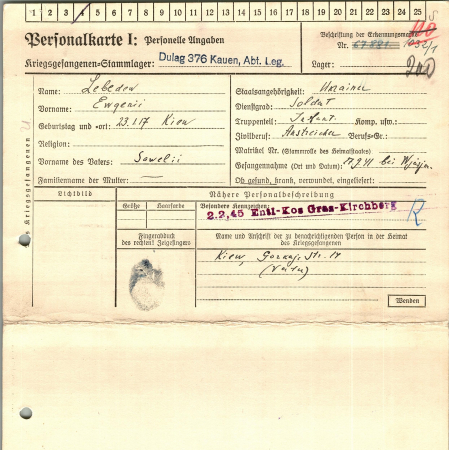 1 2 3 4 5 6 7 8 9 10 11 12 13 14 15 16 17 18 19 20 21 22 23 24 25
Personalkarte I: Personelle Angaben
Beschriftung der Erkennungsmarke
Nr.
Kriegsgefangenen-Stammlager: Dulag 376 Kauen, Abt. Leg.
Lager:
Des Kriegsgefangenen
Name: Lebedew
Vorname: Ewgenii
Geburtstag und -ort: 23.1.17 Kiew
Religion:
Vorname des Vaters: Sawelii
Familienname der Mutter: —
Staatsangehörigkeit: Ukrainer
Dienstgrad: Soldat
Truppenteil: Infant. Komp. usw.:
Zivilberuf: Anstreicher Berufs-Gr.:
Matrikel Nr. (Stammrolle des Heimatstaates)
Gefangennahme (Ort und Datum): 17.9.41 bei
Ob gesund, krank, verwundet, eingeliefert:
Lichtbild
Nähere Personalbeschreibung
Größe
Haarfarbe
Besondere Kennzeichen:
2.2.45 Entl-Kos Gras-Kirchberg
R
Fingerabdruck
des rechten Zeigefingers
Name und Anschrift der zu benachrichtigenden Person in der Heimat
des Kriegsgefangenen
Kiew, Str. 17
(Vater)
Wenden